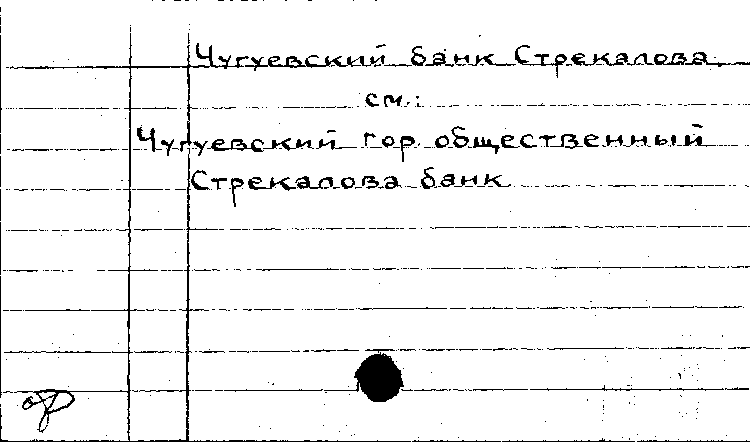 Чугуевский банк Стрекалова.
см.:
Чугуевский гор. общественный
Стрекалова банк
ор